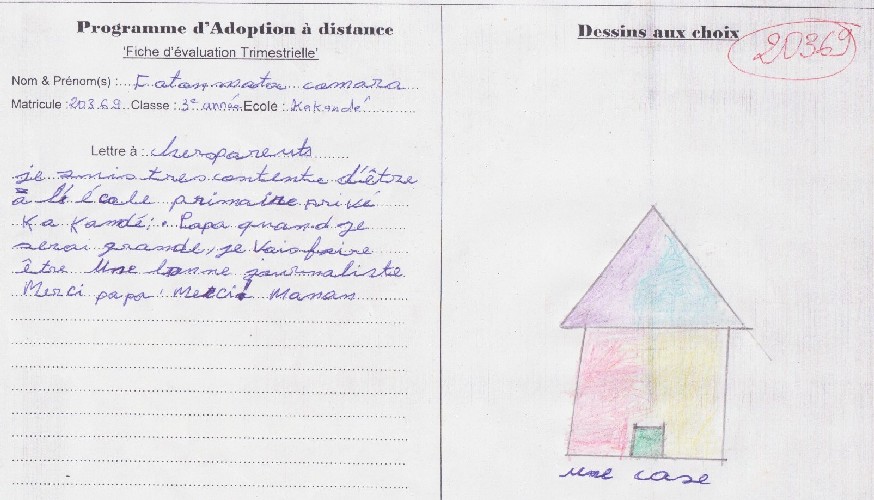 Programme d'Adoption à distance
'Fiche d'évaluation Trimestrielle'
Nom & Prénom(s) : Fatoumata camara
Matricule : 20369. Classe : 3e année. Ecole : Kakandé
Lettre à : chers parents
je suis tres contente d'être
à l'école primaire privé
Ka Kandé. Papa quand je
serai grande, je vais faire
être une bonne journaliste
Merci papa ! Merci ! Maman
Dessins aux choix
20369
une case